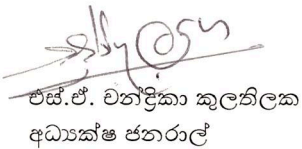 එස්.ඒ. චන්ද්‍රිකා කුලතිලක
අධ්‍යක්ෂ ජනරාල්